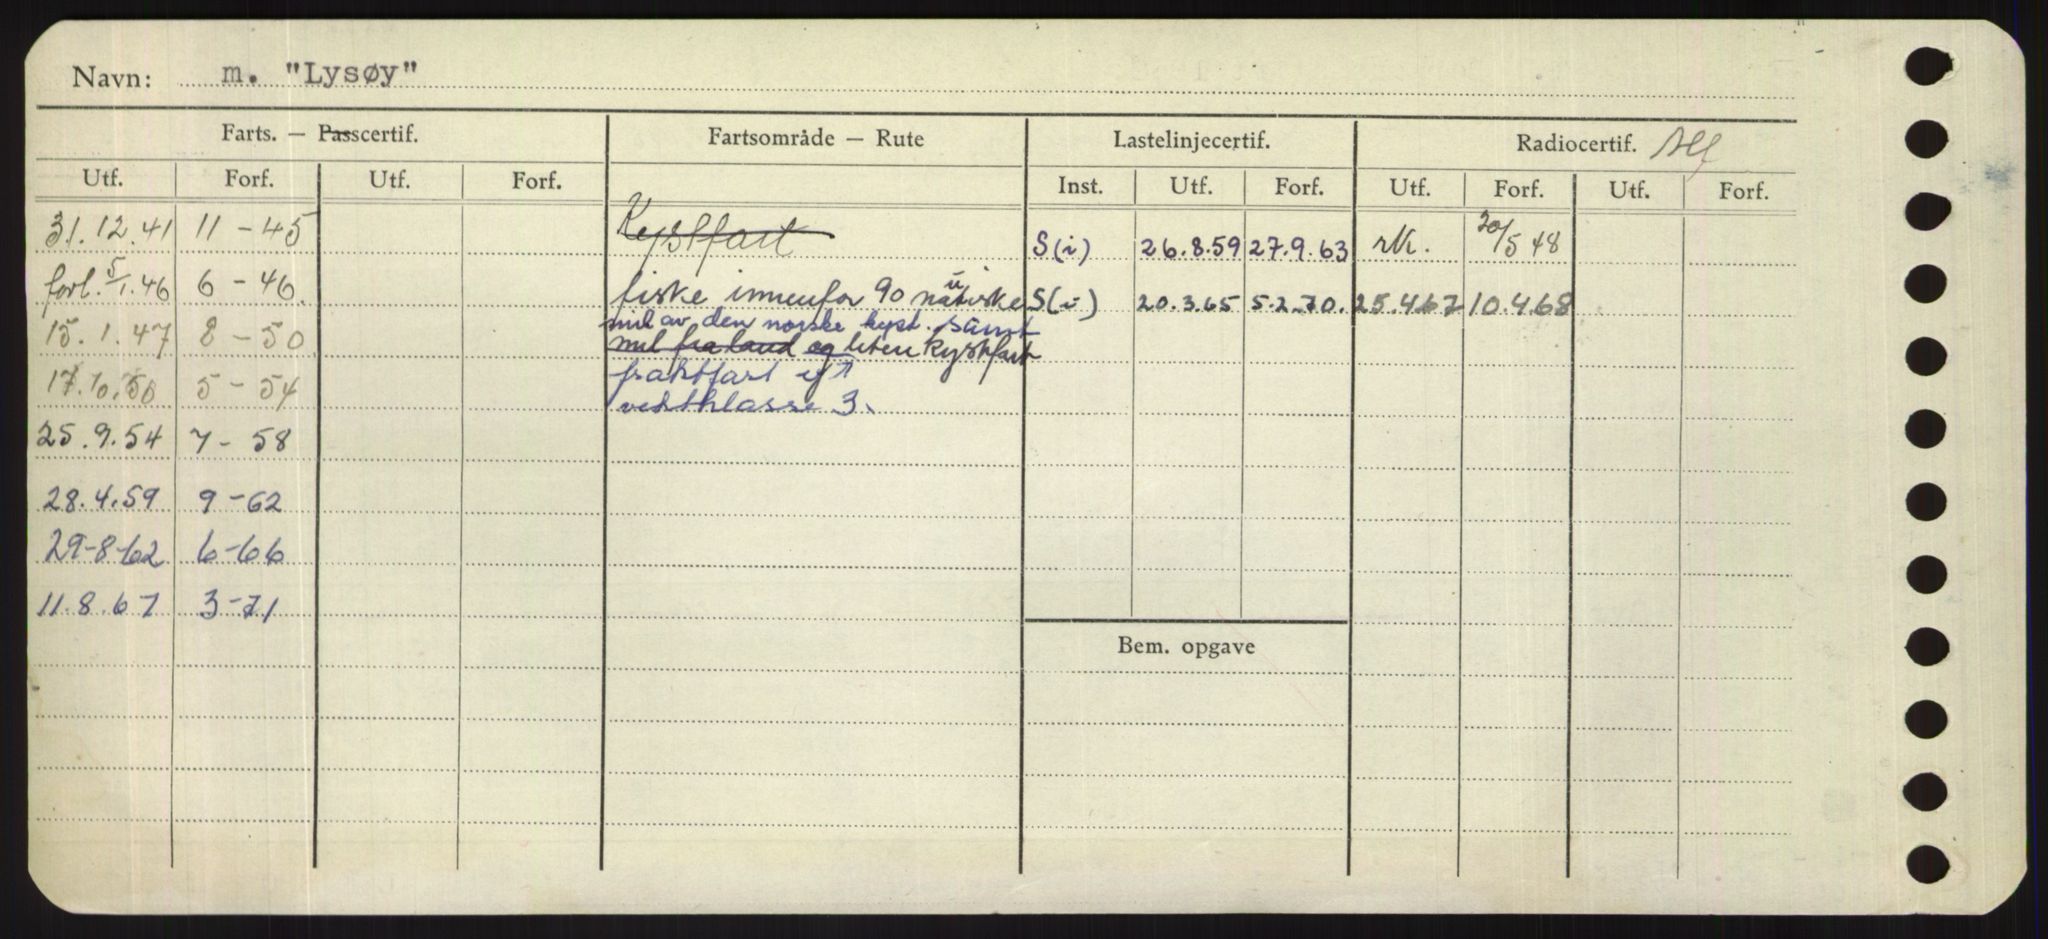 Navn: m. "Lysøy"
Farts. — Passcertif. Fartsområde — Rute Lastelinjecertif. Radiocertif.
Utf. Forf. Utf. Forf. Inst. Utf. Forf. Utf. Forf. Utf. Forf.
31.12.41 11-45 Kystfart S(i) 26.8.59 27.9.63 rk. 20/5 48
forl. 5/1.46 6-46 fiske innenfor 90 nautiske S(i) 20.3.65 5.2.70. 25.4.67 10.4.68
mil av den norske kyst. samt
15.1.47 8-50 mil fra land og liten kystfart
17.10.50 5-54 fraktfart
3.
25.9.54 7-58
28.4.59 9-62
29-8-62 6-66
11.8.67 3-71
Bem. opgave